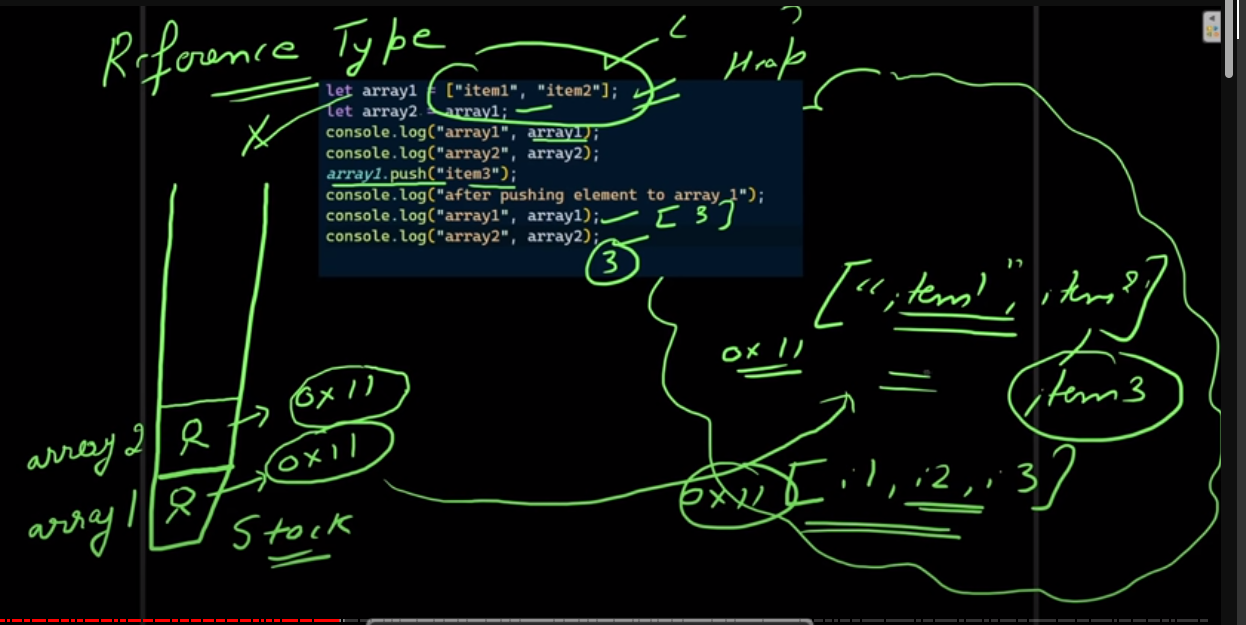 Reference Type
Heap
let array1 = ["item1", "item2"];
let array2 = array1;
console.log("array1", array1);
console.log("array2", array2);
array1.push("item3");
console.log("after pushing element to array 1");
console.log("array1", array1);
[ 3 ]
console.log("array2", array2);
3
["item1", item2]
0x11
item3
0x11
array 2 R
0x11
array 1 R
0x11 [ i1, i2, i3 ]
Stack